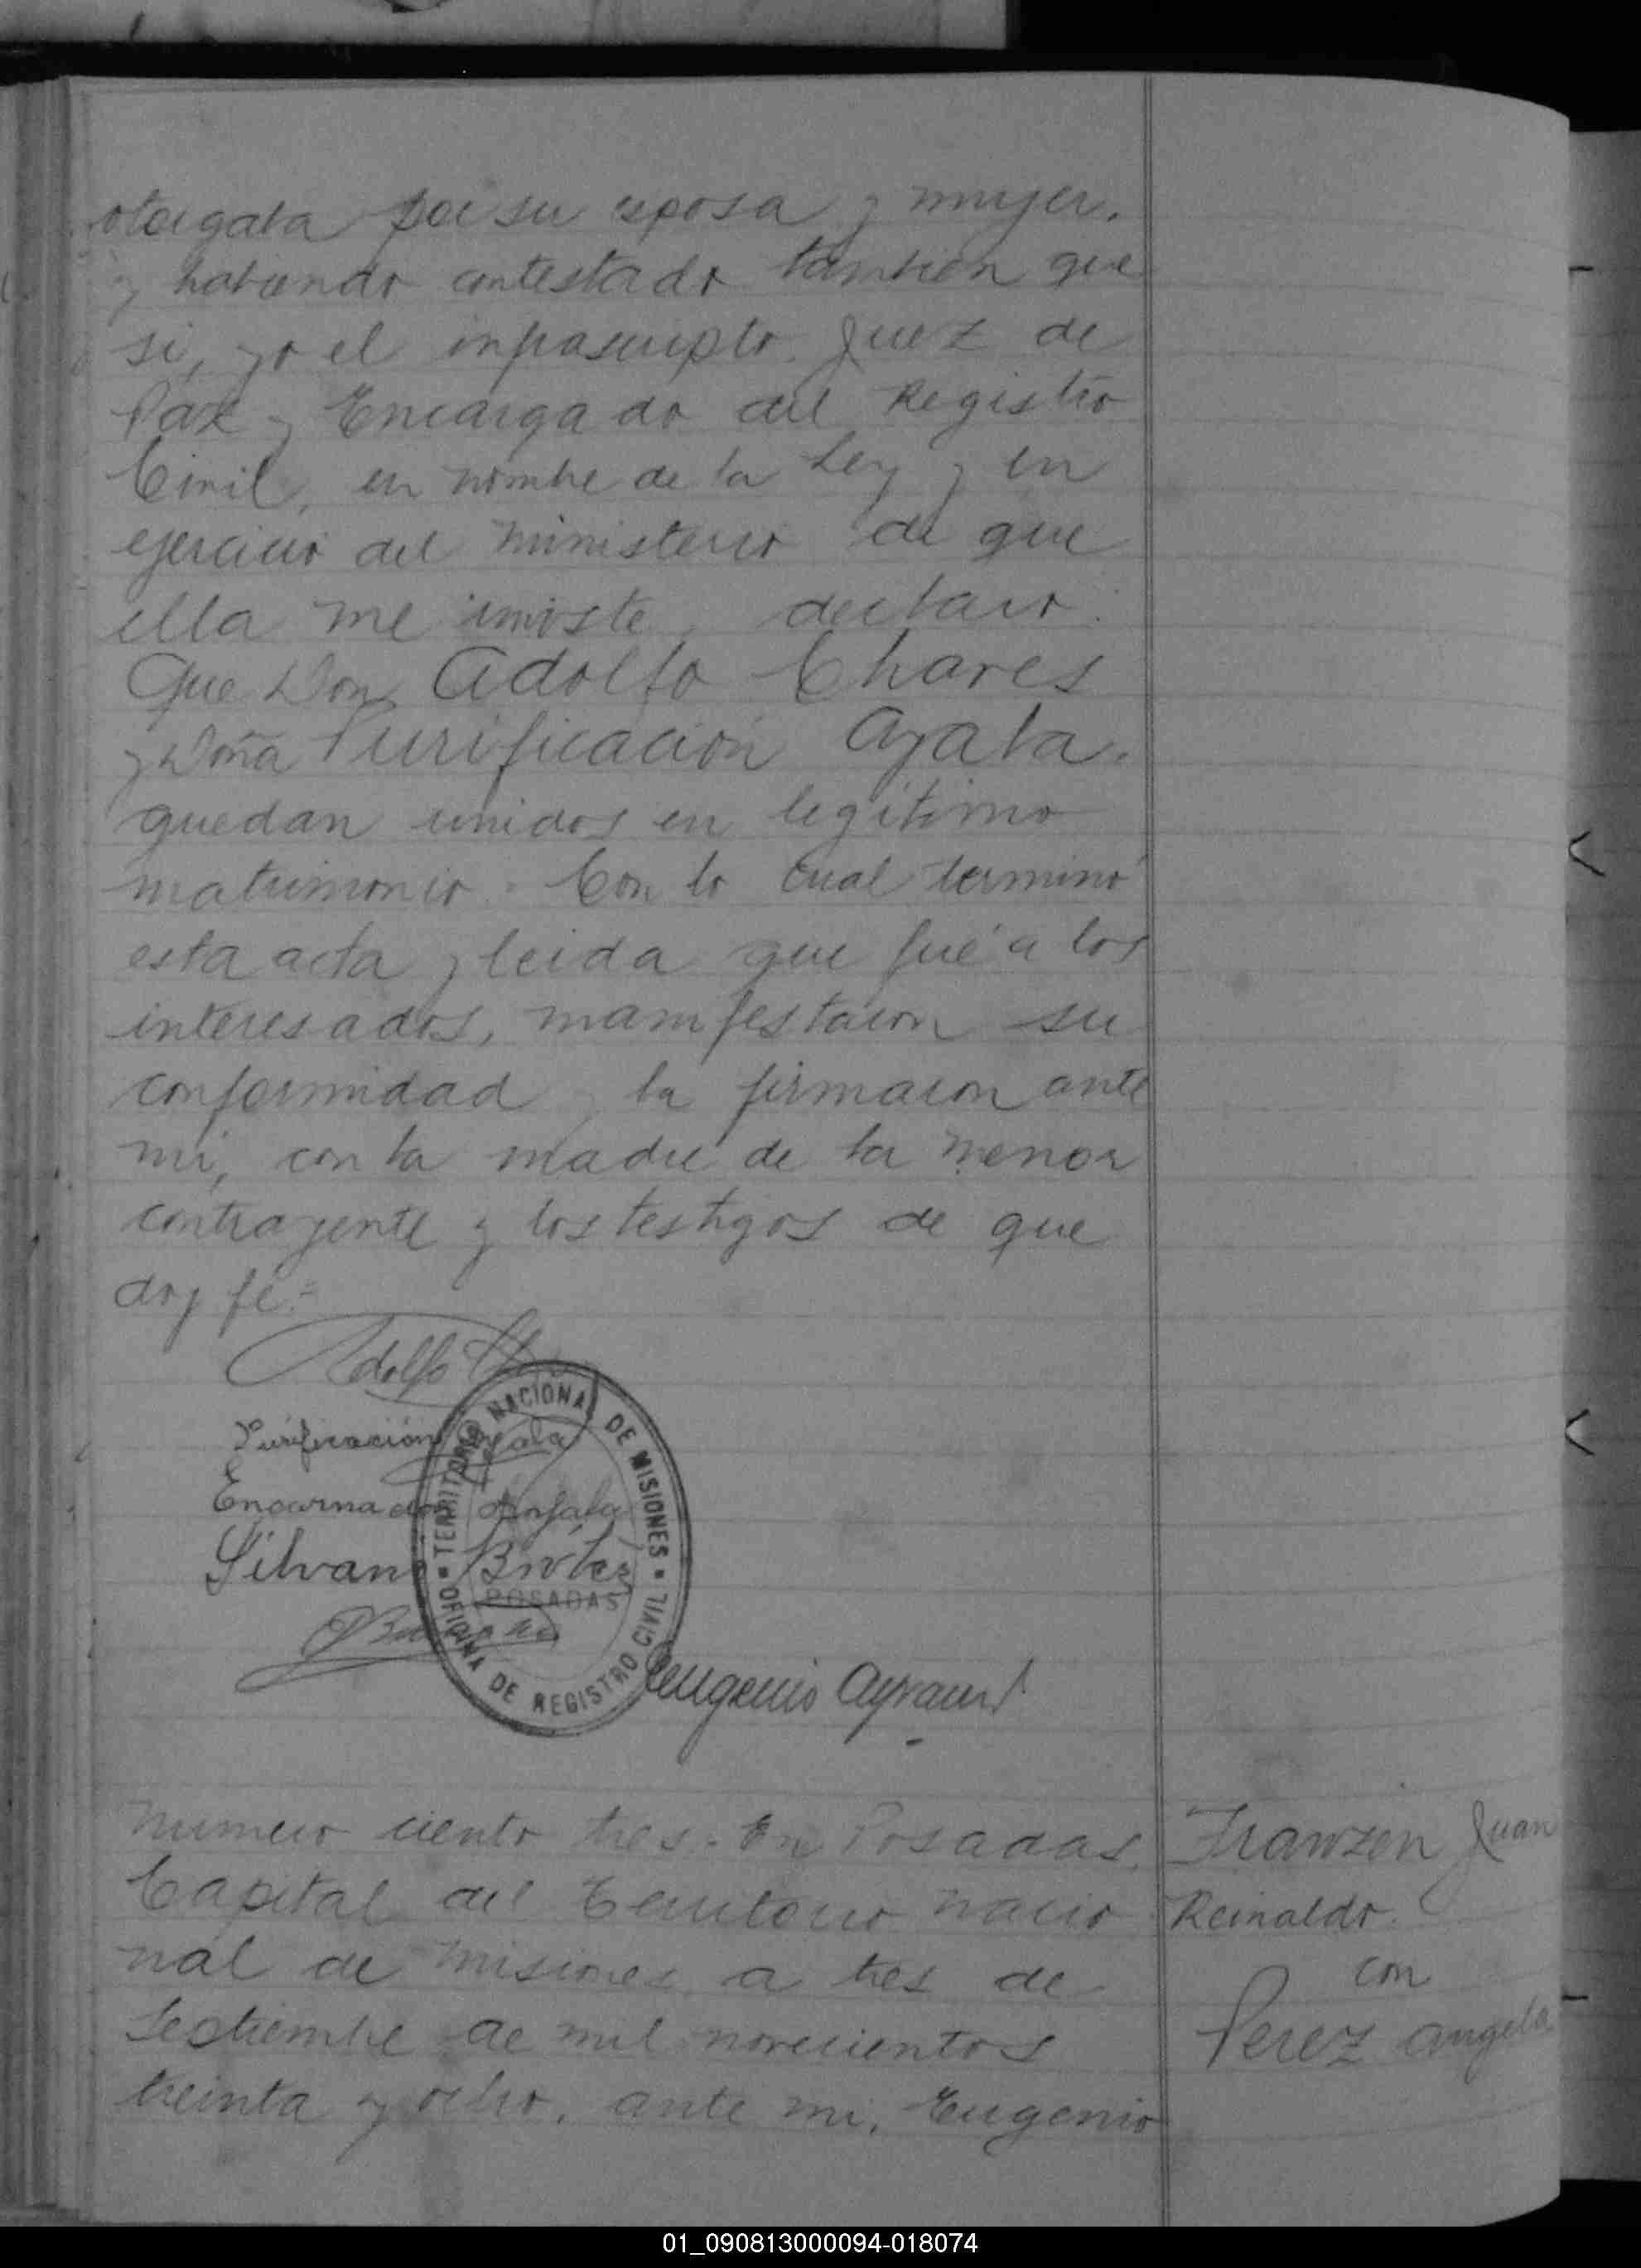 otorgarla por su esposa y mujer,
y habiendo contestado tambien que
si, yo el infrascripto Juez de
Paz y Encargado del Registro
Civil, en nombre de la Ley y en
ejercicio del ministerio de que
ella me inviste, declaro:
Que Don Adolfo Chares
y Doña Purificación Ayala.
quedan unidos en legítimo
matrimonio. Con lo cual terminó
esta acta y leida que fué a los
interesados, manifestaron su
conformidad y la firmaron ante
mi, con la madre de la menor
contrayente y los testigos de que
doy fé.=
Adolfo
Purificación Ayala
Encarnacion
Silvano
TERRITORIO NACIONAL DE MISIONES
POSADAS
OFICINA DE REGISTRO CIVIL
Eugenio Ayraut
Numero ciento tres.- En Posadas,
Capital del Territorio Nacio
nal de Misiones a tres de
Septiembre de mil novecientos
treinta y ocho, ante mi, Eugenio
Franzen Juan
Reinaldo.
con
Perez Angela
01_090813000094-018074